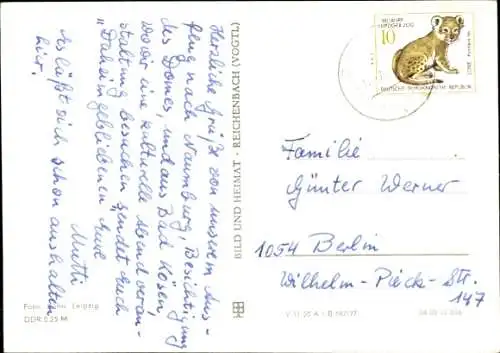 Herzliche Grüße von unserem Aus-
flug nach Naumburg, Besichtigung
des Domes, und aus Bad Kösen,
wo wir eine kulturelle Abendveran-
staltung besuchen, sendet Euch
"Daheimgebliebenen" Eure
Mutti
Es läßt sich schon aushalten
hier!
BILD UND HEIMAT · REICHENBACH (VOGTL)
Foto: Leipzig
DDR 0,25 M
10
LEIPZIGER ZOO
DEUTSCHE DEMOKRATISCHE REPUBLIK
Familie
Günter Werner
1054 Berlin
Wilhelm-Pieck-Str.
147